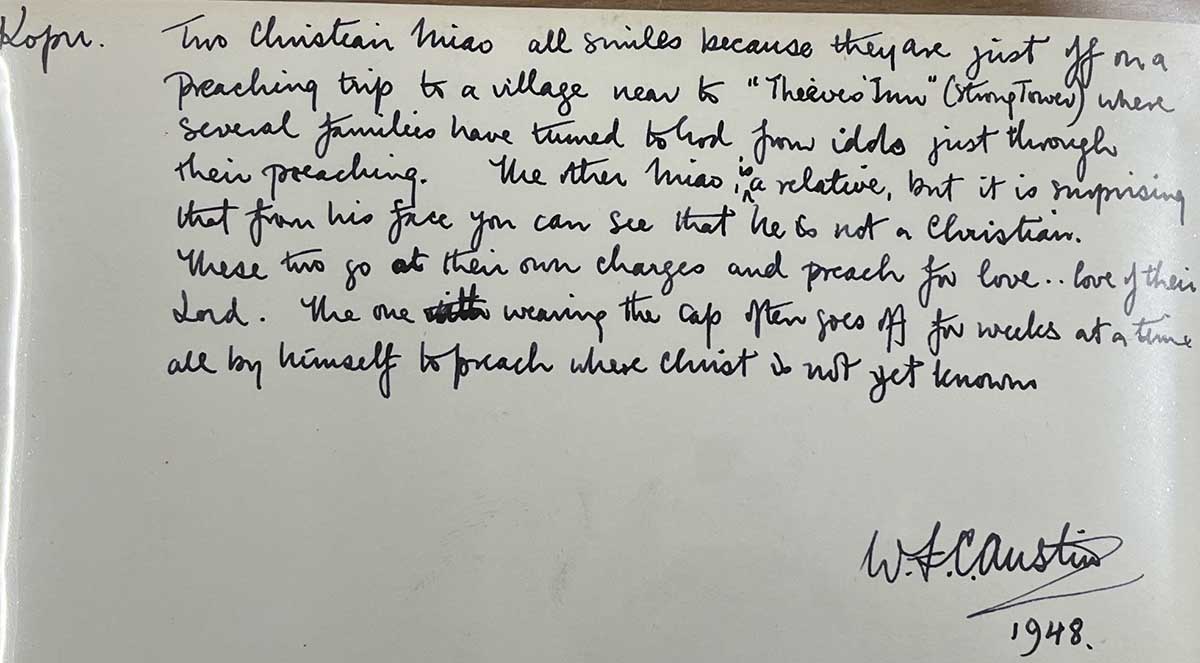 Kopu. Two Christian Miao all smiles because they are just off on a
preaching trip to a village near to "Thieves' Inn" (Strong Tower) where
several families have turned to God from idols just through
their preaching. The other Miao, is a relative, but it is surprising
that from his face you can see that he is not a Christian.
These two go at their own charges and preach for love.. love of their
Lord. The one wearing the cap often goes off for weeks at a time
all by himself to preach where Christ is not yet known
W.F.C. Austin
1948.